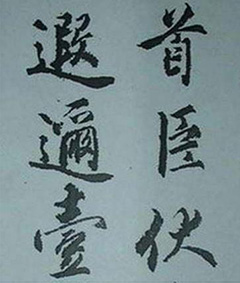 首臣伏
遐邇壹